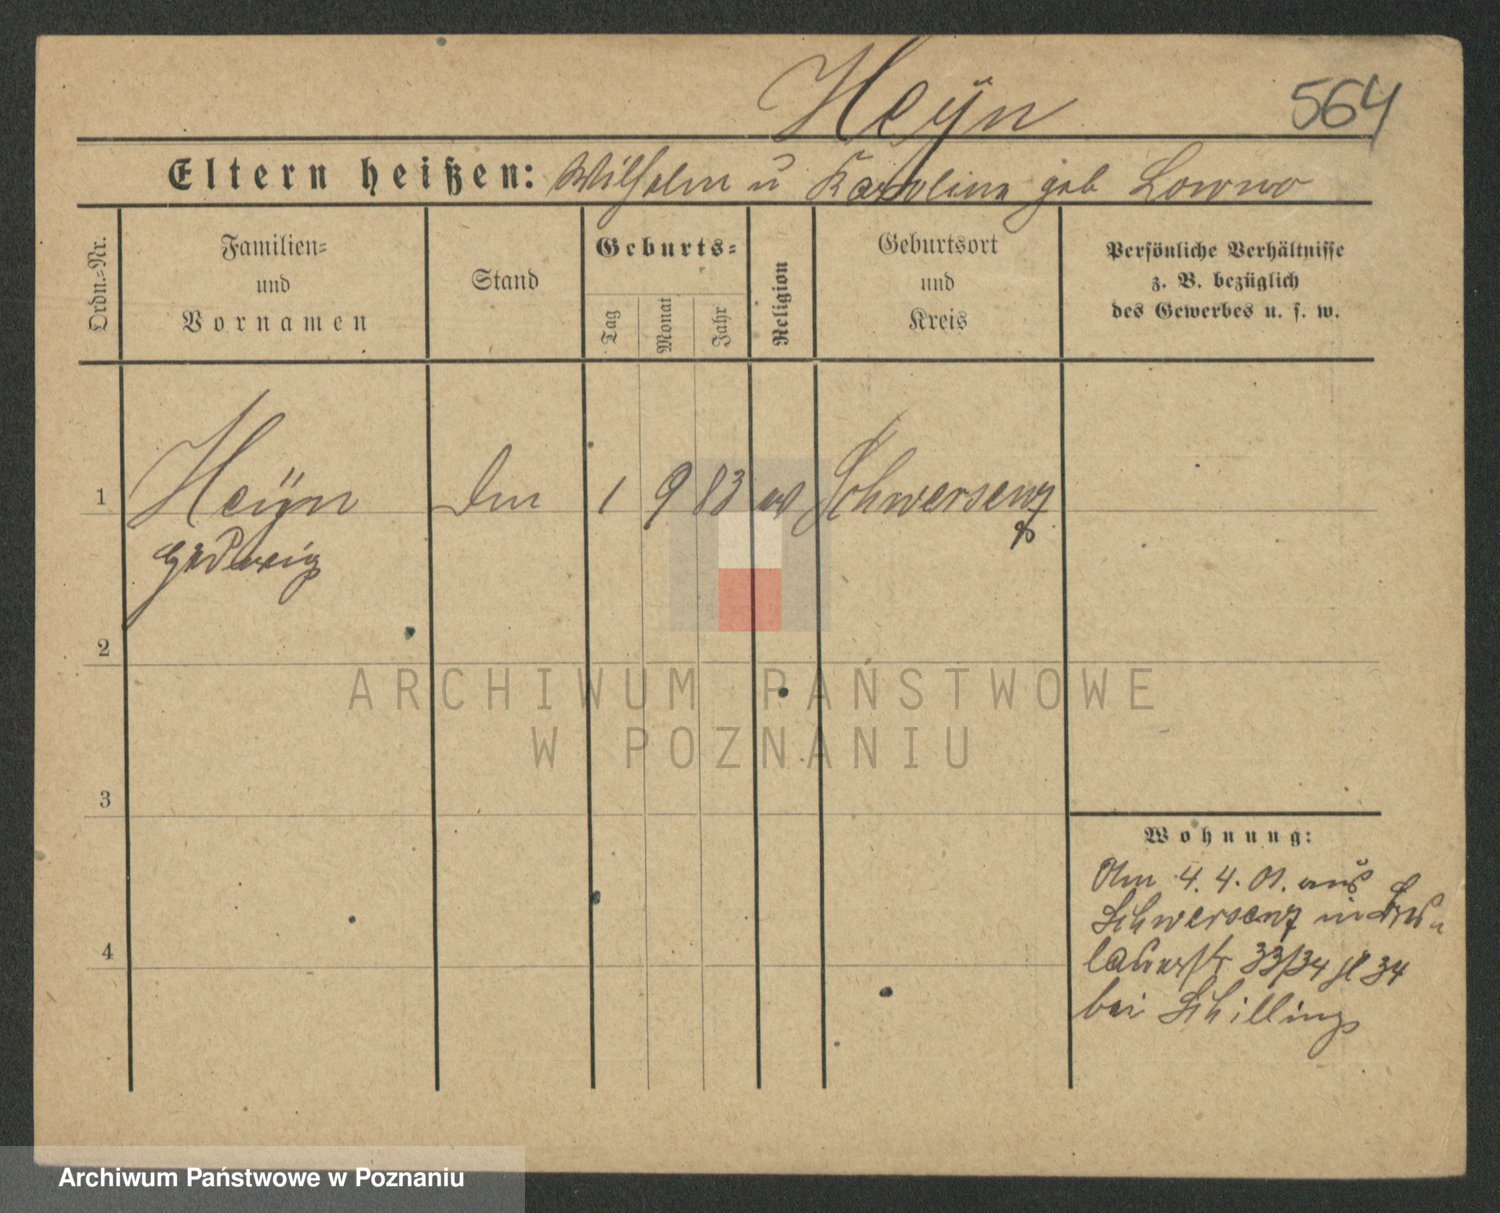 Heÿn 564
Eltern heißen: Wilhelm u Karoline geb
Ordn.=Nr.
Familien=
und
Vornamen
Stand
Geburts=
Tag
Monat
Jahr
Religion
Geburtsort
und
Kreis
Persönliche Verhältnisse
z. B. bezüglich
des Gewerbes u. s. w.
1 Heÿn 1 9 83 Schwersenz
Hedwig
2
3
4
Wohnung:
Am 4. 4. 01. aus
Schwersenz in Bres-
lauerstr 33/34 jl 34
bei Schilling
ARCHIWUM PAŃSTWOWE
W POZNANIU
Archiwum Państwowe w Poznaniu